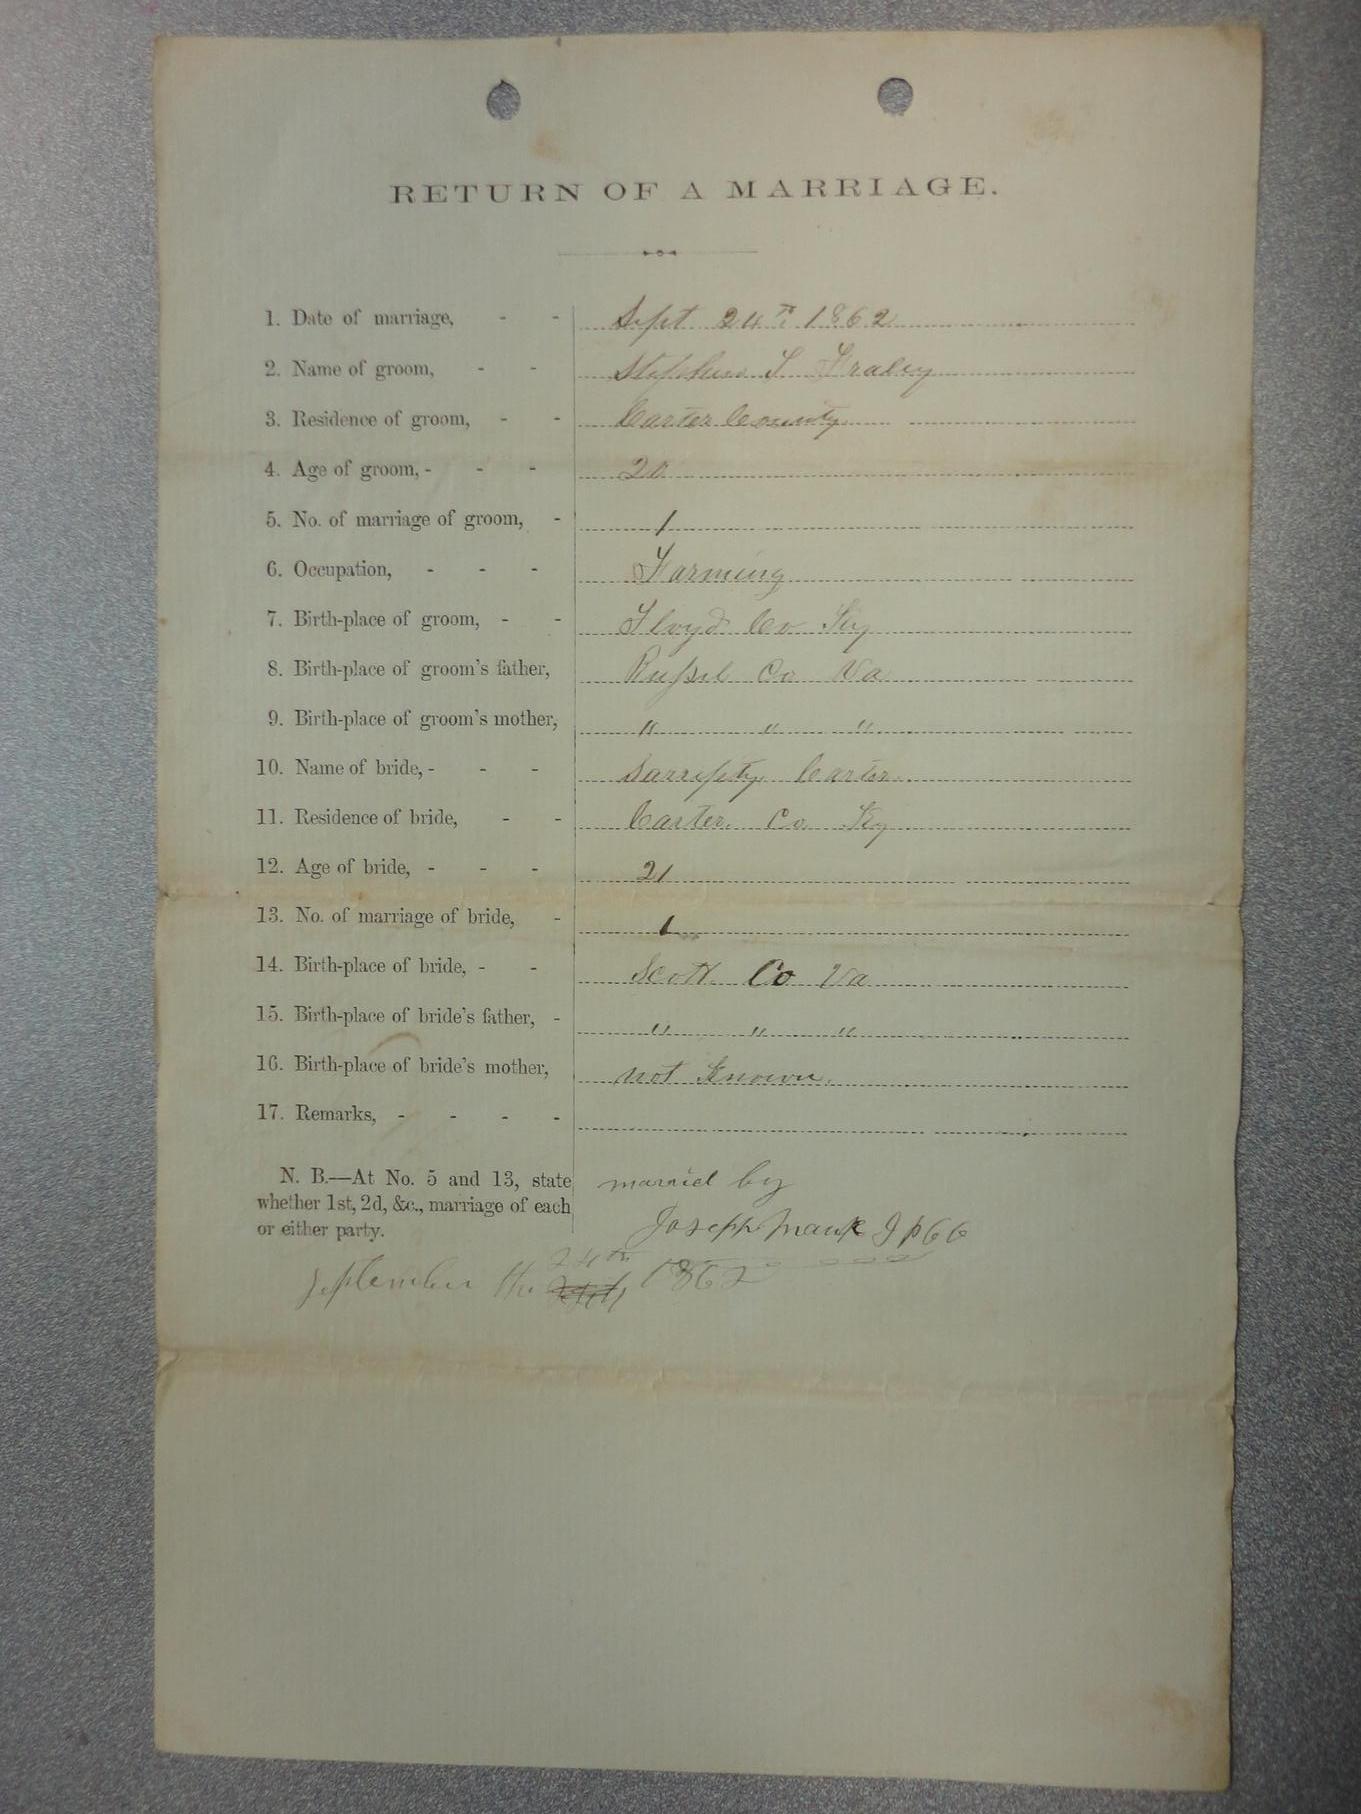 RETURN OF A MARRIAGE.
1. Date of marriage, - - Sept 24th 1862
2. Name of groom, - - Stephen S Fraley
3. Residence of groom, - - Carter County
4. Age of groom, - - - 20
5. No. of marriage of groom, - 1
6. Occupation, - - - Farming
7. Birth-place of groom, - - Floyd Co Ky
8. Birth-place of groom's father, Russel Co Va
9. Birth-place of groom's mother, " " "
10. Name of bride, - - - Carter
11. Residence of bride, - - Carter Co Ky
12. Age of bride, - - - 21
13. No. of marriage of bride, - 1
14. Birth-place of bride, - - Scott Co Va
15. Birth-place of bride's father, - " " "
16. Birth-place of bride's mother, not Known.
17. Remarks, - - - -
N. B.—At No. 5 and 13, state
whether 1st, 2d, &c., marriage of each
or either party.
married by
Joseph
September the 24th 1862